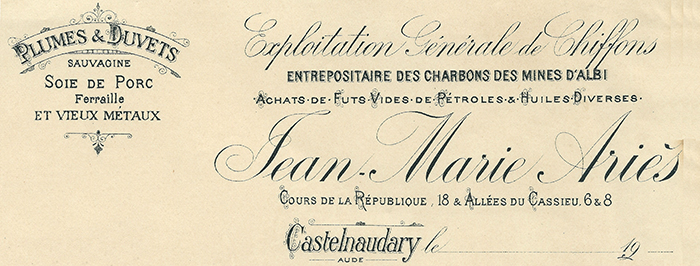 PLUMES & DUVETS
SAUVAGINE
SOIE DE PORC
Ferraille
ET VIEUX MÉTAUX
Exploitation Générale de Chiffons
ENTREPOSITAIRE DES CHARBONS DES MINES D'ALBI
ACHATS·DE·FUTS·VIDES·DE·PÉTROLES·&·HUILES·DIVERSES·
Jean-Marie Ariès
COURS DE LA RÉPUBLIQUE, 18 & ALLÉES DU CASSIEU, 6 & 8
Castelnaudary le 19
AUDE